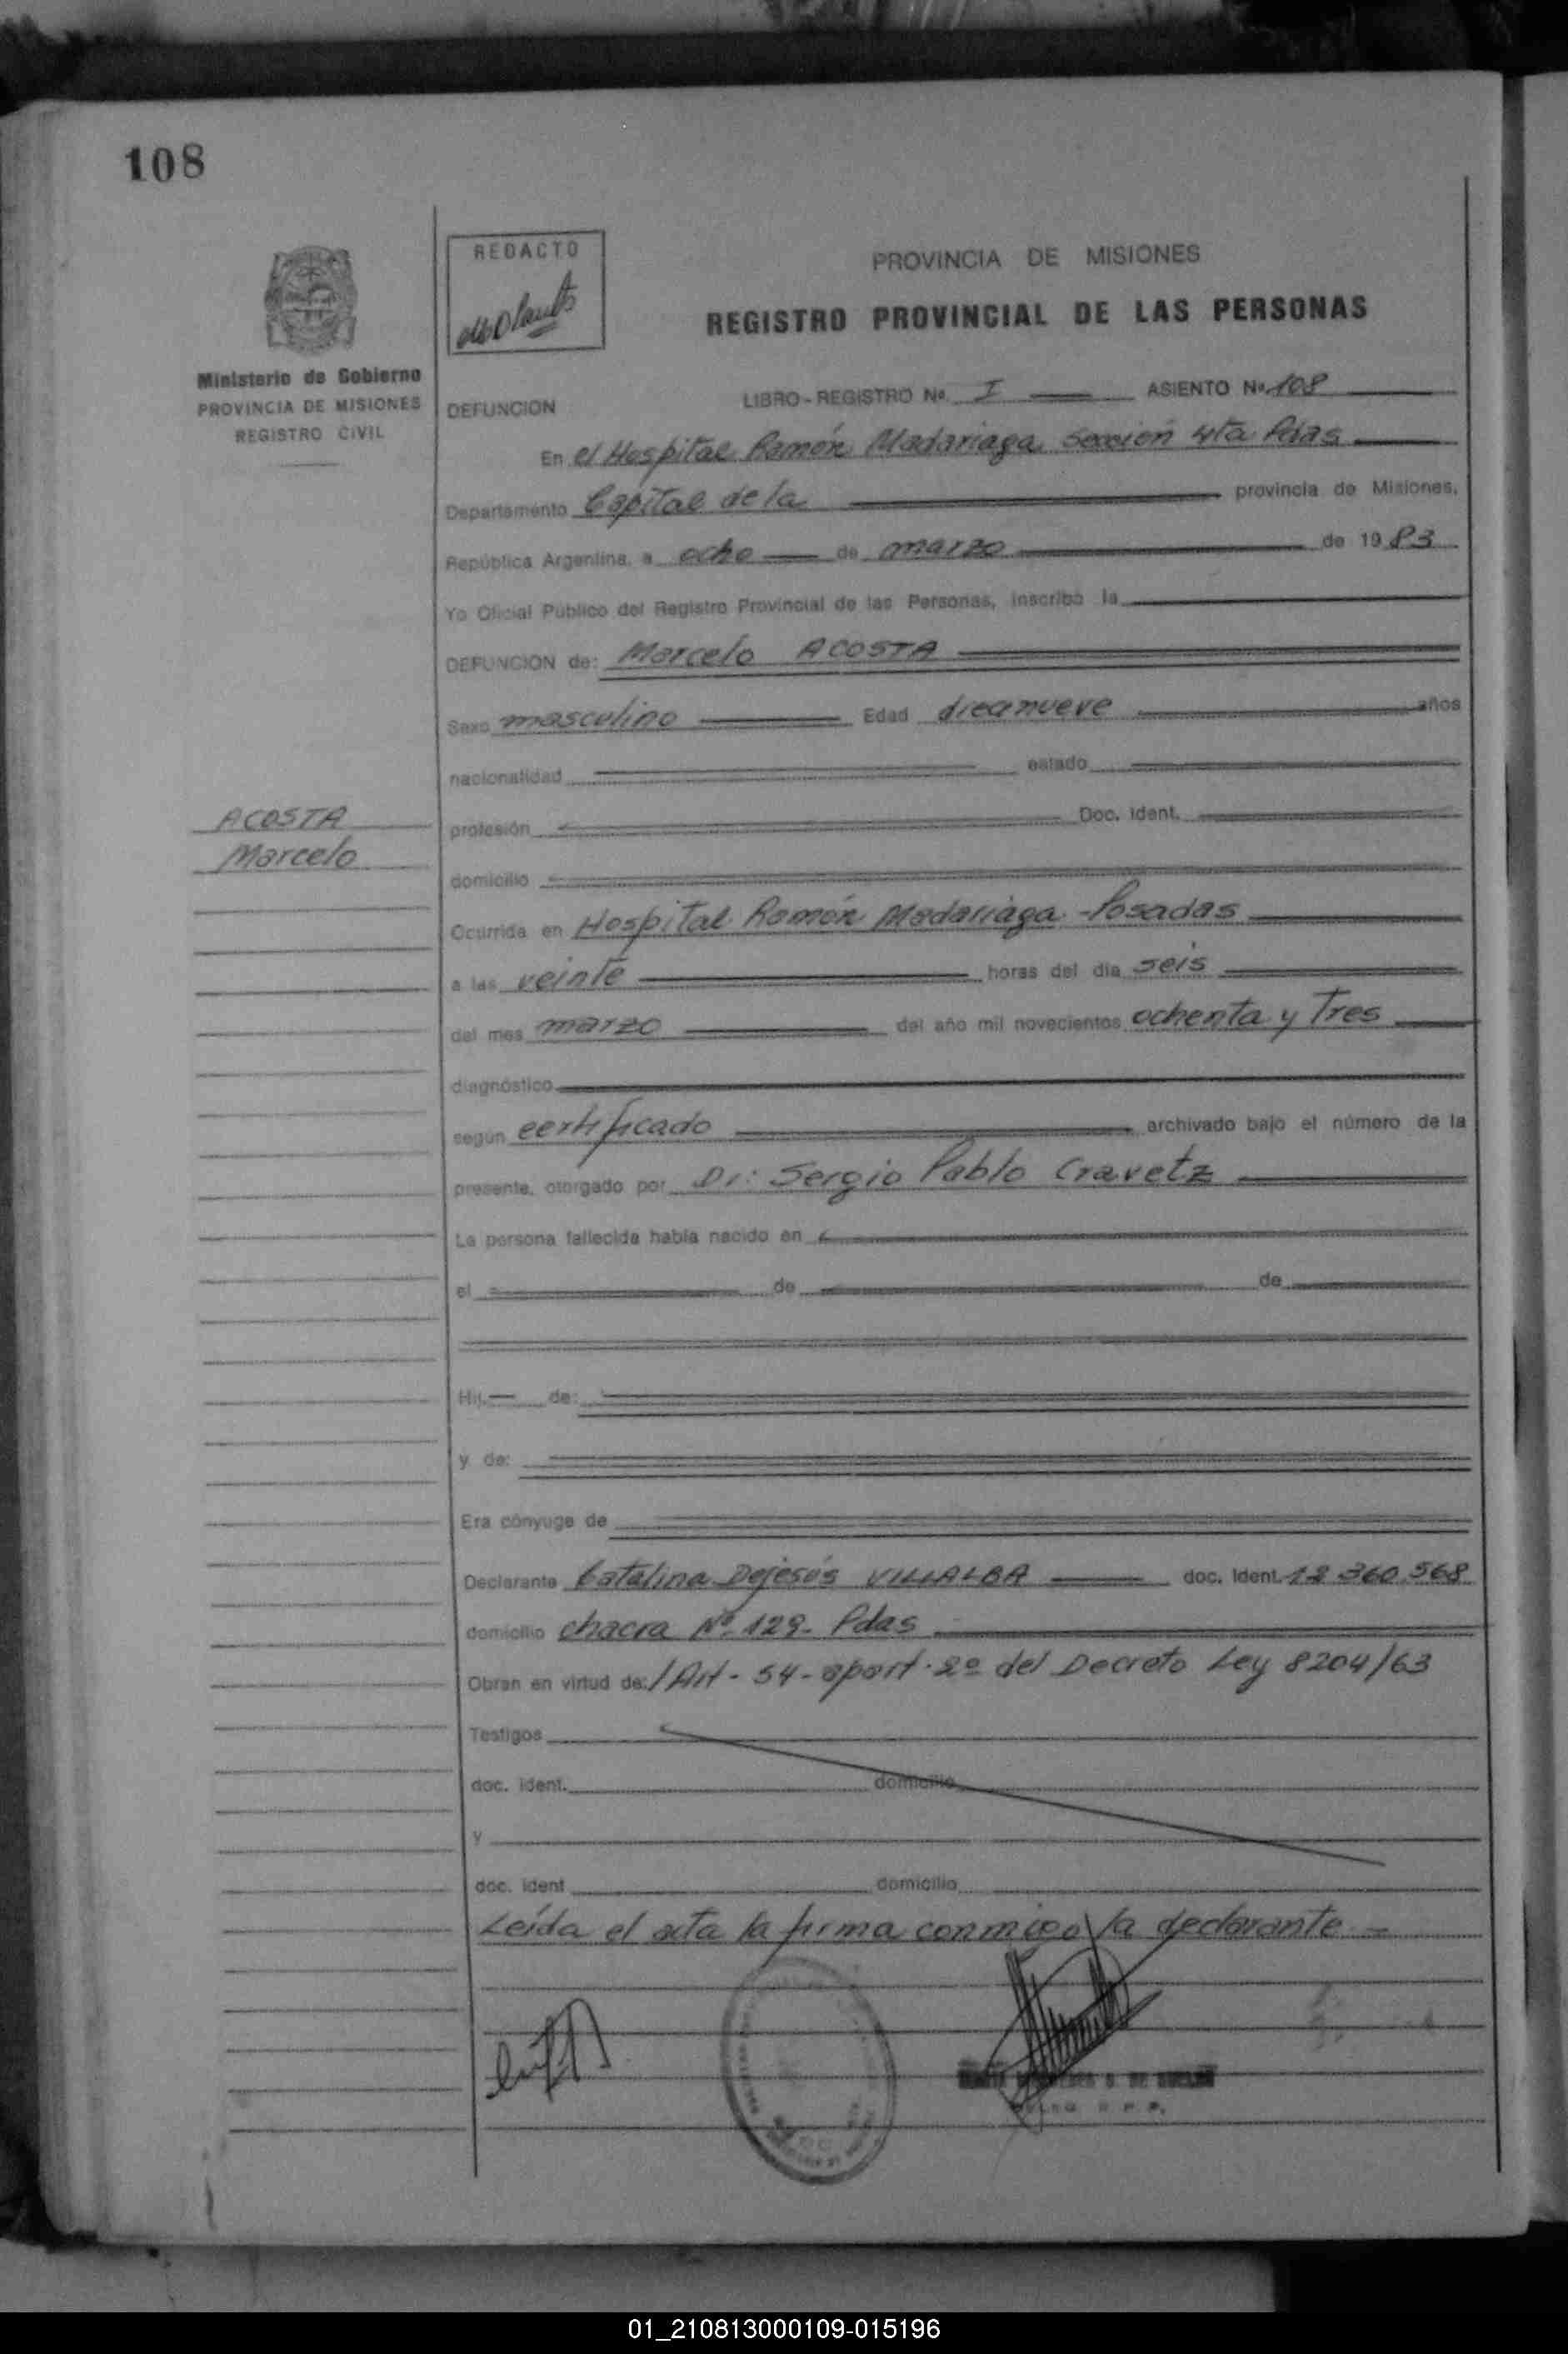 108
REDACTO
PROVINCIA DE MISIONES
REGISTRO PROVINCIAL DE LAS PERSONAS
Ministerio de Gobierno
PROVINCIA DE MISIONES
REGISTRO CIVIL
DEFUNCION LIBRO-REGISTRO Nº I ASIENTO Nº 108
En el Hospital Ramón Madariaga Sección 4ta Pdas
Departamento Capital de la provincia de Misiones,
República Argentina, a ocho de marzo de 1983
Yo Oficial Público del Registro Provincial de las Personas, inscribo la
DEFUNCION de: Marcelo ACOSTA
Sexo masculino Edad diecinueve años
nacionalidad estado
ACOSTA
Marcelo
profesión Doc. Ident.
domicilio
Ocurrida en Hospital Ramón Madariaga - Posadas
a las veinte horas del día seis
del mes marzo del año mil novecientos ochenta y Tres
diagnóstico
según certificado archivado bajo el número de la
presente, otorgado por Dr: Sergio Pablo Cravetz
La persona fallecida había nacido en
el de de
Hij de:
y de:
Era cónyuge de
Declarante Catalina Dejesús VILLALBA doc. Ident. 12 360 568
domicilio chacra Nº 129- Pdas
Obran en virtud de: /Art - 54 - apart. 2º del Decreto Ley 8204/63
Testigos
doc. ident. domicilio
y
doc. ident domicilio
Leída el acta la firma conmigo la declarante -
01_210813000109-015196